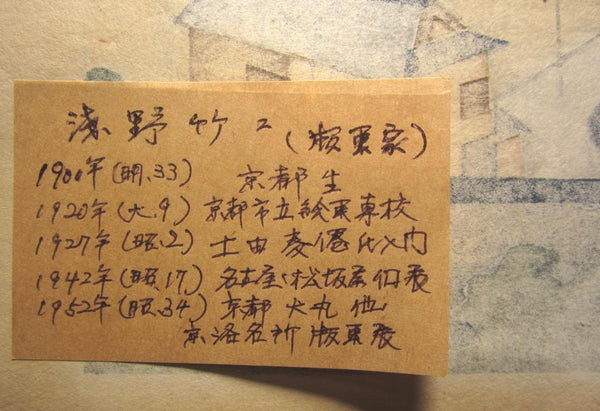 浅野竹二(版画家)
1900年(明.33) 京都生
1920年(大.9) 京都市立絵画専校
1927年(昭.2) 土田麦僊氏入門
1942年(昭.17) 名古屋、松坂屋個展
1952年(昭.34) 京都 大丸 他
京洛名所版画展